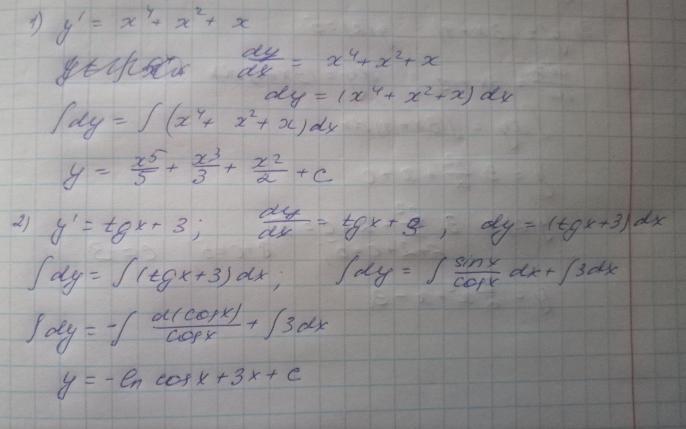 1) y' = x⁴ + x² + x
dy/dx = x⁴ + x² + x
dy = (x⁴ + x² + x) dx
∫dy = ∫(x⁴ + x² + x) dx
y = x⁵/5 + x³/3 + x²/2 + C
2) y' = tgx + 3 ; dy/dx = tgx + 3 , dy = (tgx+3) dx
∫dy = ∫(tgx+3) dx ; ∫dy = ∫ sinx/cosx dx + ∫3dx
∫dy = -∫ d(cosx)/cosx + ∫3dx
y = -ln cosx + 3x + C